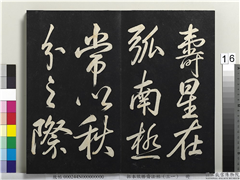 壽星在
弧南極
常以秋
分之際
16